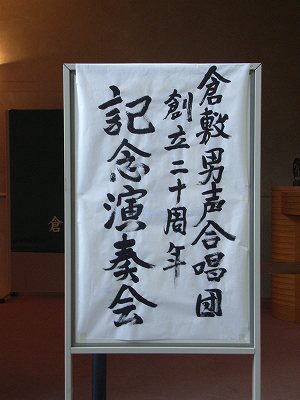 倉敷男声合唱団
創立二十周年
記念演奏会
倉